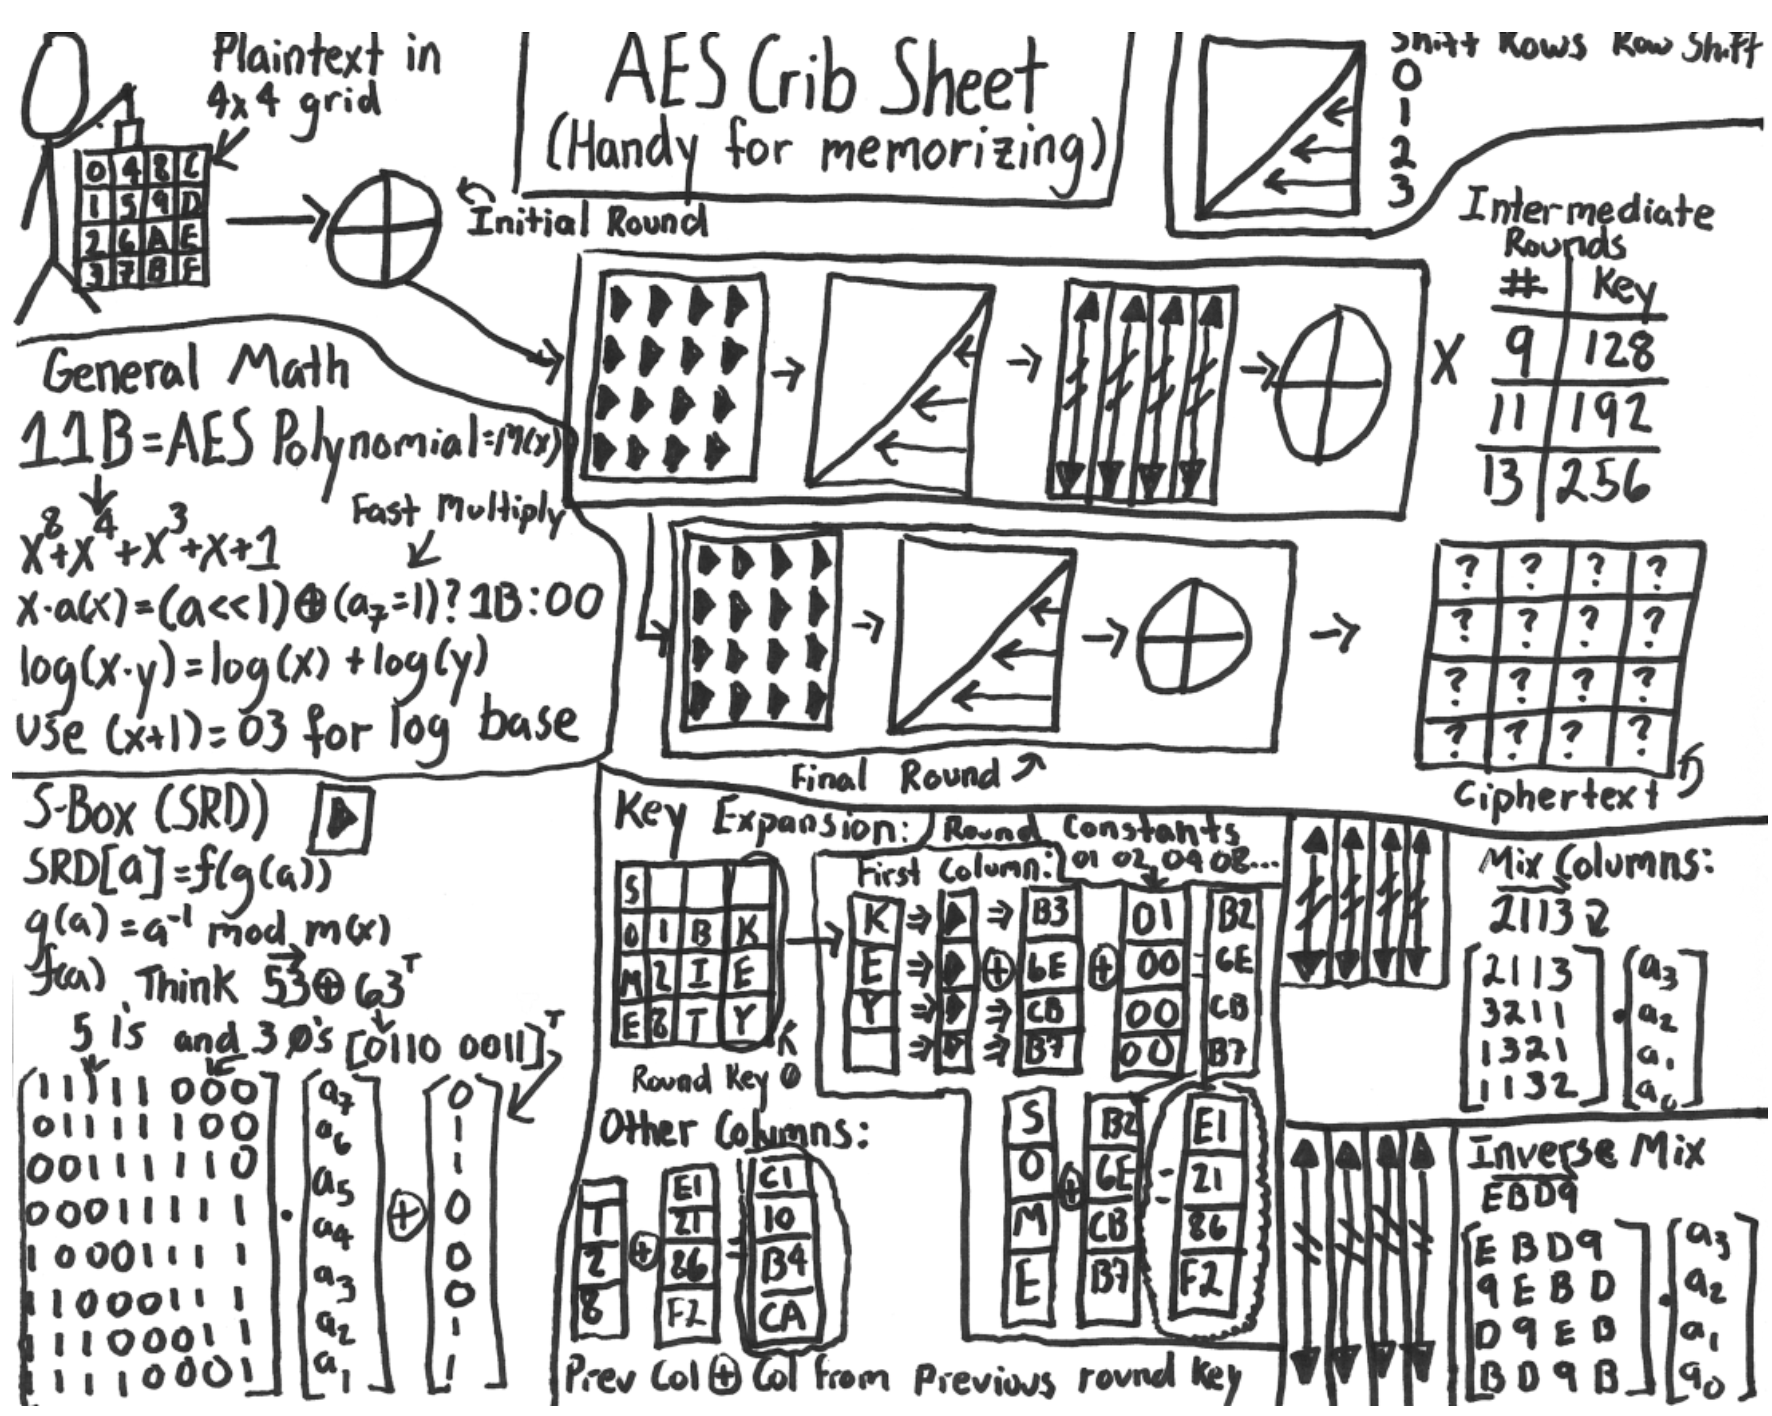 Plaintext in
4x4 grid
0 4 8 C
1 5 9 D
2 6 A E
3 7 B F
AES Crib Sheet
(Handy for memorizing)
Shift Rows Row Shift
0
1
2
3
Initial Round
Intermediate
Rounds
# Key
9 128
11 192
13 256
X
General Math
11B=AES Polynomial=M(x)
x^8+x^4+x^3+x+1
Fast Multiply
x·a(x)=(a<<1)⊕(a7=1)?1B:00
log(x·y)=log(x)+log(y)
use (x+1)=03 for log base
? ? ? ?
? ? ? ?
? ? ? ?
? ? ? ?
Final Round
Ciphertext
S-Box (SRD)
SRD[a]=f(g(a))
g(a)=a^-1 mod m(x)
f(a) Think 53⊕63^T
5 1's and 3 0's [0110 0011]^T
1 1 1 1 1 0 0 0
0 1 1 1 1 1 0 0
0 0 1 1 1 1 1 0
0 0 0 1 1 1 1 1
1 0 0 0 1 1 1 1
1 1 0 0 0 1 1 1
1 1 1 0 0 0 1 1
1 1 1 1 0 0 0 1
·
a7
a6
a5
a4
a3
a2
a1
⊕
0
1
1
0
0
0
1
1
Key Expansion:
Round Constants
01 02 04 08...
First Column:
S
O 1 B K
M 2 I E
E 8 T Y
Round Key 0
K ⇒ ⇒ B3 01 B2
E ⇒ ⊕ 6E ⊕ 00 = 6E
Y ⇒ ⇒ CB 00 CB
⇒ ⇒ B7 00 B7
S B2 E1
O ⊕ 6E = 21
M CB 86
E B7 F2
Other Columns:
E1 C1
1 21 10
2 ⊕ 86 = B4
8 F2 CA
Prev Col ⊕ Col from Previous round key
Mix Columns:
2113
2113 a3
3211 · a2
1321 a1
1132 a0
Inverse Mix
EBD9
E B D 9 a3
9 E B D · a2
D 9 E B a1
B D 9 B a0